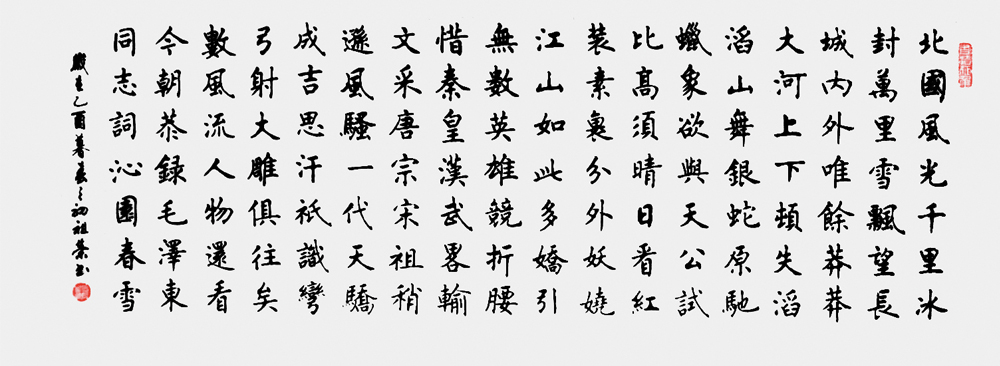 北國風光千里冰
封萬里雪飄望長
城內外唯餘莽莽
大河上下頓失滔
滔山舞銀蛇原馳
蠟象欲與天公試
比高須晴日看紅
裝素裹分外妖嬈
江山如此多嬌引
無數英雄競折腰
惜秦皇漢武畧輸
文采唐宗宋祖稍
遜風騷一代天驕
成吉思汗祇識彎
弓射大雕俱往矣
數風流人物還看
今朝恭録毛澤東
同志詞沁園春雪
歲在乙酉暮春之初祖榮書